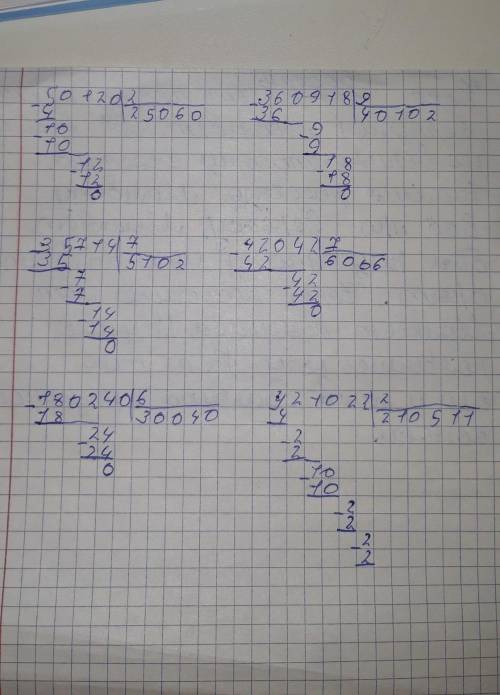 -50120|2
4|25060
-10
10
-12
12
0
-360918|9
36|40102
-9
9
-18
18
0
-35714|7
35|5102
-7
7
-14
14
0
-42042|7
42|6006
-42
42
0
-180240|6
18|30040
-24
24
0
-421022|2
4|210511
-2
2
-10
10
-2
2
-2
2